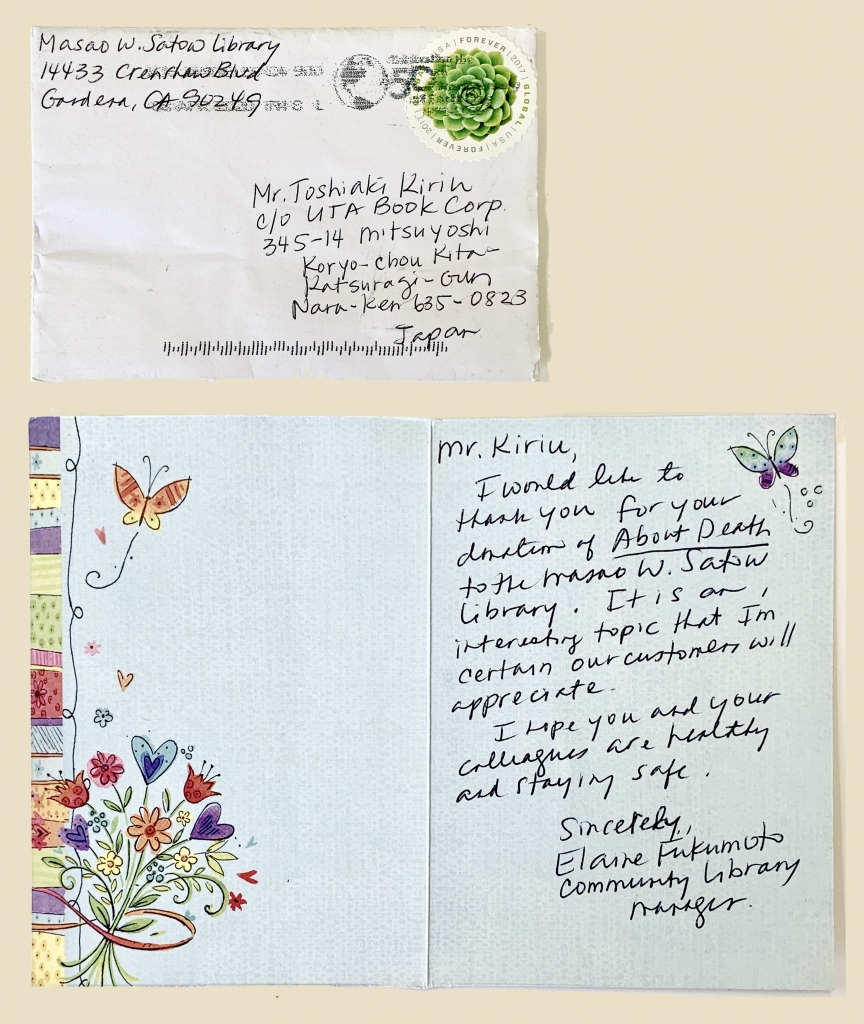 Masao W. Satow Library
14433 Crenshaw Blvd
Gardena, CA 90249
USA | FOREVER | 2017 | GLOBAL | USA | FOREVER | 2017
Mr. Toshiaki Kiriu
c/o UTA Book Corp.
345-14 Mitsuyoshi
Koryo-chou Kita-
Katsuragi-Gun
Nara-Ken 635-0823
Japan
Mr. Kiriu,
I would like to
thank you for your
donation of About Death
to the Masao W. Satow
library. It is an
interesting topic that I'm
certain our customers will
appreciate.
I hope you and your
colleagues are healthy
and staying safe.
Sincerely,
Elaine Fukumoto
Community Library
Manager.